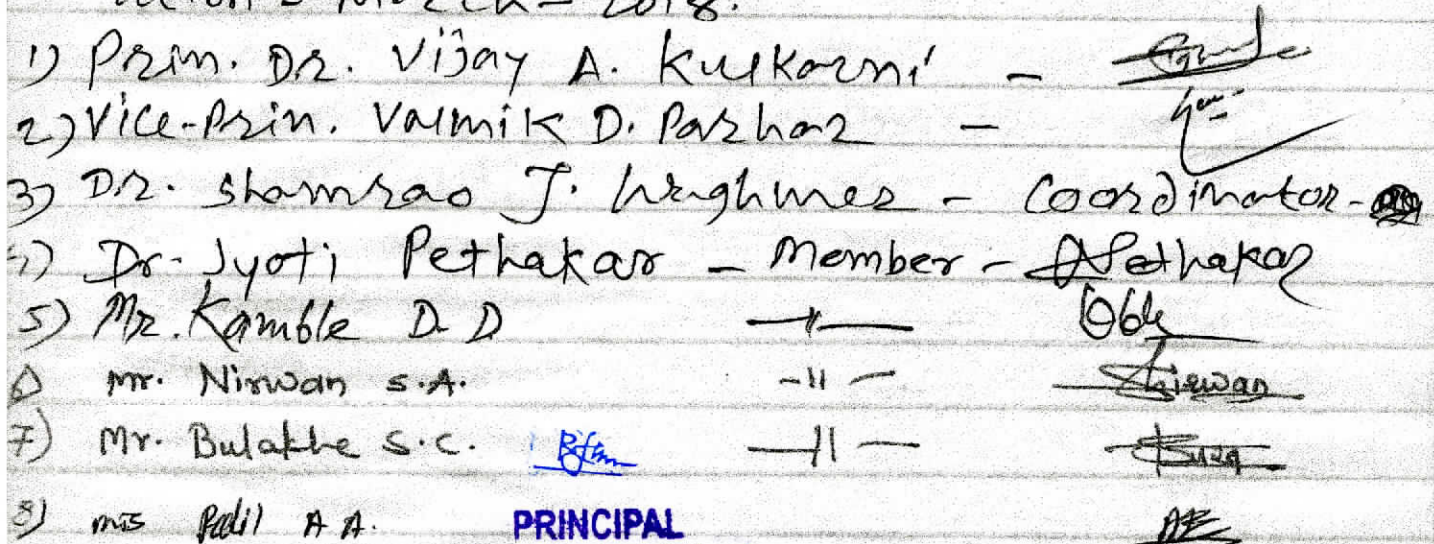 March - 2018.
1) Prin. Dr. Vijay A. Kulkarni -
2) Vice-Prin. Valmik D. Parhar -
3) Dr. Shamrao J. Waghmer - Coordinator -
4) Dr. Jyoti Pethakar - Member - Pethakar
5) Mr. Kamble D. D —〃—
6) Mr. Nirwan S.A. -〃- Nirwan
7) Mr. Bulakhe S.C. —〃—
8) Mis Patil A A. PRINCIPAL